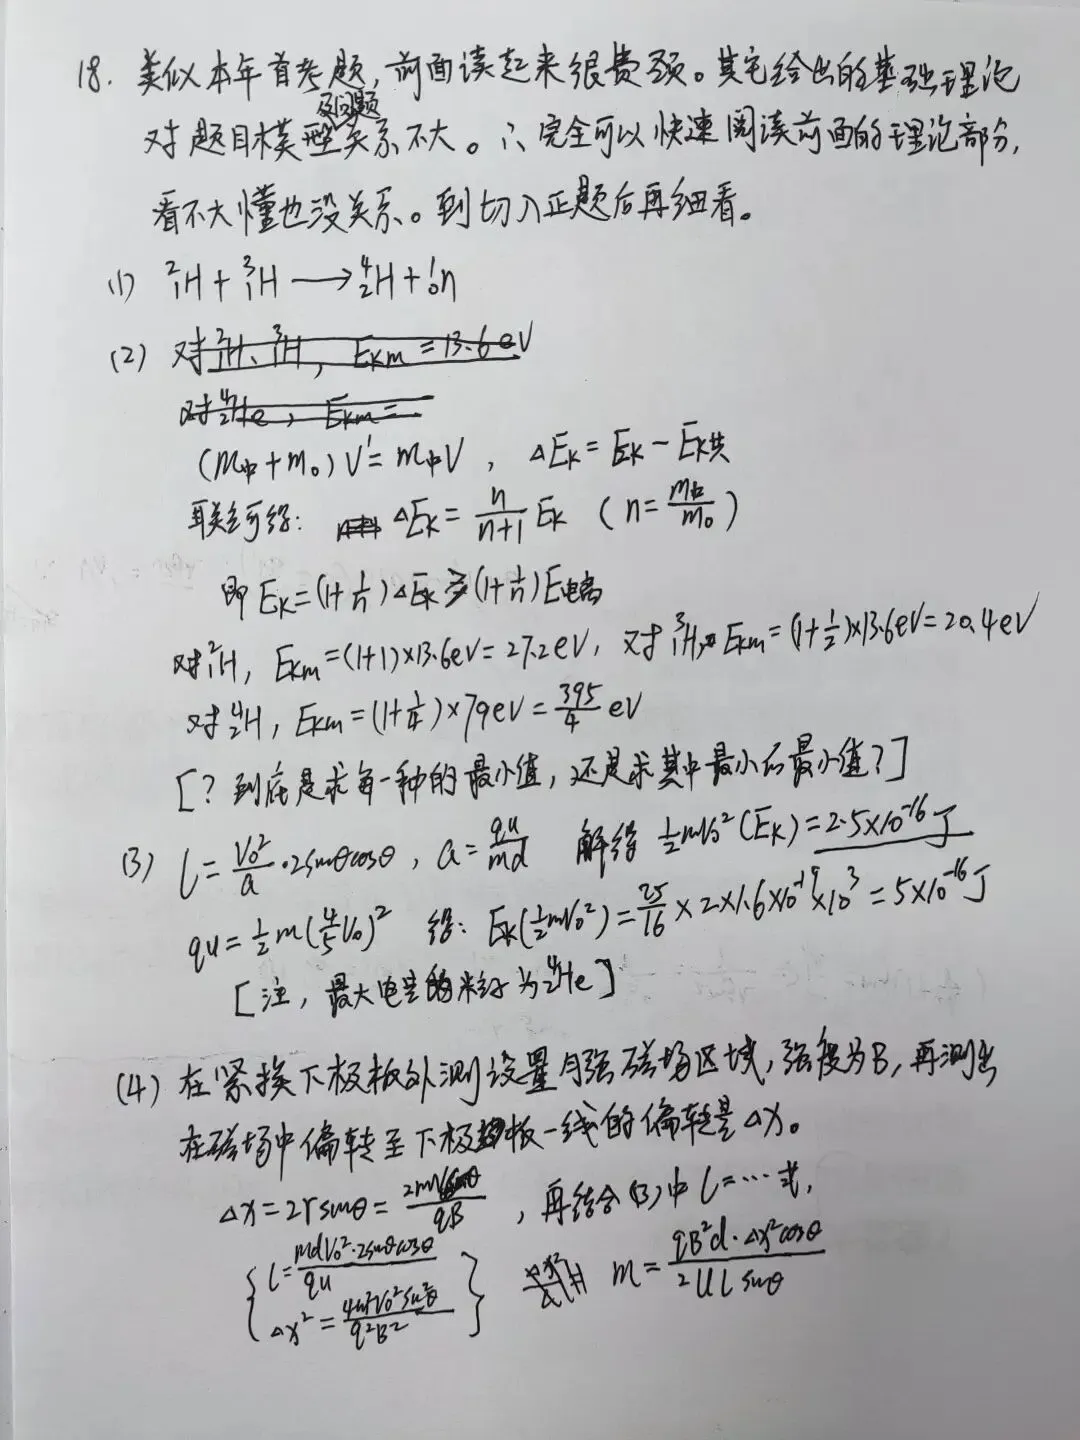 18. 类似本年首考题,前面读起来很费频。其它给出的基础理论
及问题
对题目模型关系不大。∴完全可以快速阅读前面的理论部分,
看不大懂也没关系。到切入正题后再细看。
(1) ²₁H + ³₁H ⟶ ⁴₂H + ¹₀n
(2) 对²₁H、³₁H, Ekm = 13.6eV
对⁴₂He, Ekm =
(m中+m₀)V' = m中V , ΔEk = Ek − Ek共
联立可得: ΔEk = n/(n+1) Ek (n = m中/m₀)
即 Ek = (1+1/n)ΔEk ≥ (1+1/n)E电离
对²₁H, Ekm = (1+1)×13.6eV = 27.2eV, 对³₁H, Ekm = (1+1/2)×13.6eV = 20.4eV
对⁴₂H, Ekm = (1+1/4)×79eV = 395/4 eV
[? 到底是求每一种的最小值,还是求其中最小的最小值?]
(3) L = V₀²/a · 2sinθcosθ, a = qu/md 解得 ½mV₀²(Ek) = 2.5×10⁻¹⁶J
qu = ½m(4/5V₀)² 得: Ek(½mV₀²) = 25/16 × 2×1.6×10⁻¹⁹×10³ = 5×10⁻¹⁶J
[注, 最大电荷的粒子为⁴₂He]
(4) 在紧挨下极板外测设置匀强磁场区域,强度为B,再测出
在磁场中偏转至下极板一线的偏转是Δx。
Δx = 2rsinθ = 2mV₀sinθ/qB , 再结合(3)中 L=⋯式,
{ L = mdV₀²·2sinθcosθ/qu
Δx² = 4m²V₀²sin²θ/q²B² } 得 m = qB²d·Δx²cosθ/2ULsinθ